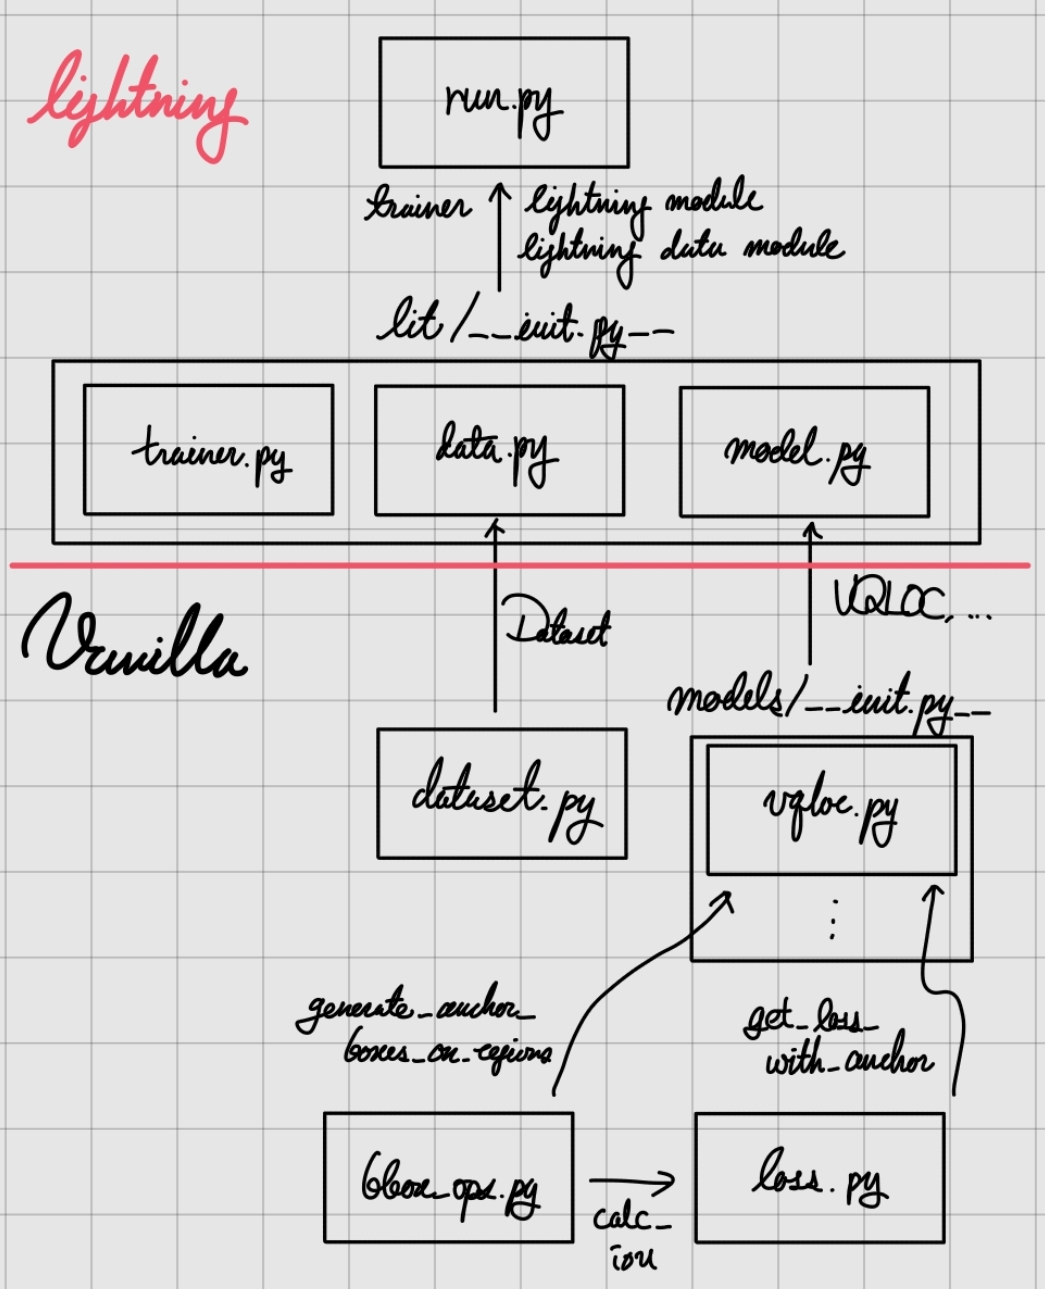 lightning
run.py
trainer
lightning module
lightning data module
lit/__init.py__
trainer.py
data.py
model.py
Vanilla
Dataset
VQLOC, ...
models/__init.py__
dataset.py
vqloc.py
⋮
generate_anchor_
boxes_on_regions
get_loss_
with_anchor
bbox_ops.py
calc_
iou
loss.py